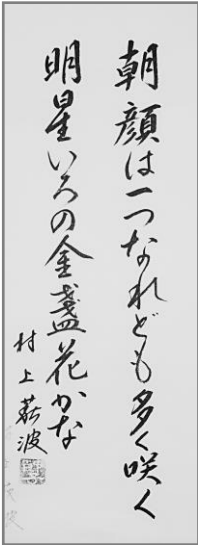 朝顔は一つなれども多く咲く
明星いろの金盞花かな
村上萩波